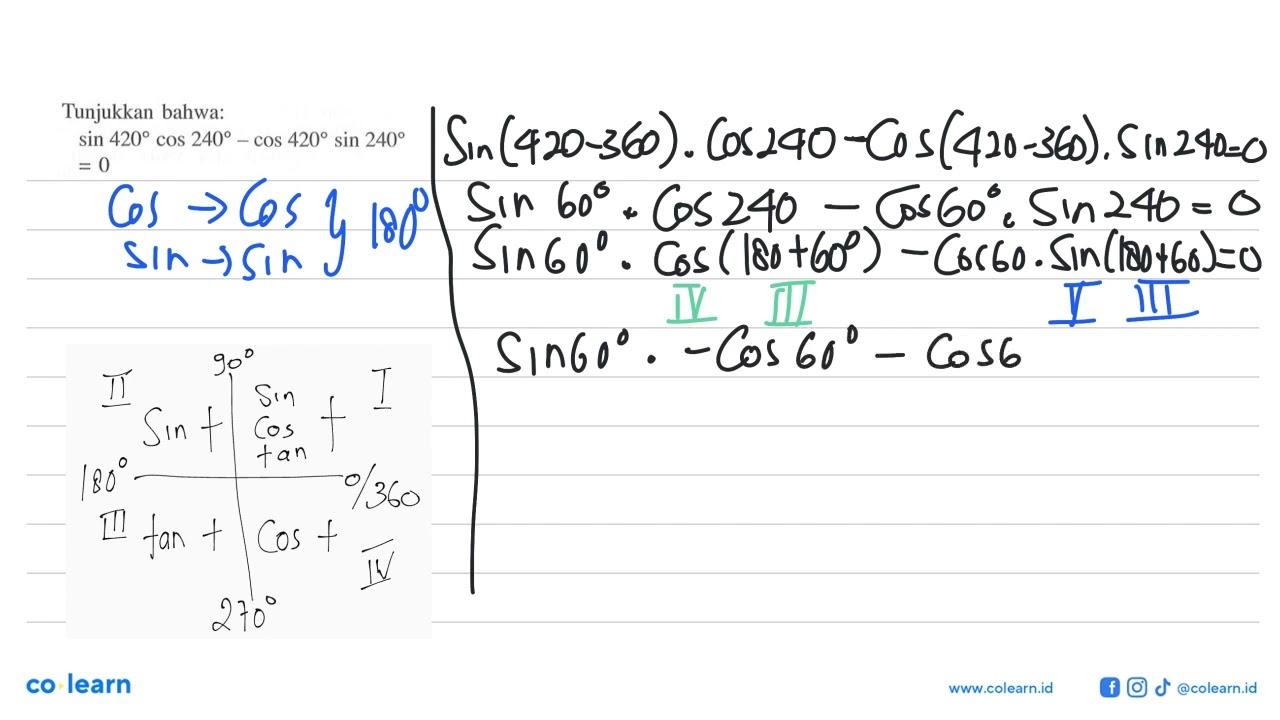 Tunjukkan bahwa:
sin 420° cos 240° – cos 420° sin 240°
= 0
Cos → Cos } 180°
sin → sin
90°
II I
Sin + Sin
Cos +
tan
180° 0/360
III tan + Cos +
IV
270°
Sin(420-360). Cos240-Cos(420-360). Sin240=0
Sin 60°. Cos 240 - Cos60°. Sin 240 = 0
Sin60°. Cos(180+60°) - Cos60. Sin(180+60)=0
IV III V III
Sin60°. -Cos 60° - Cos6
co learn
www.colearn.id
@colearn.id